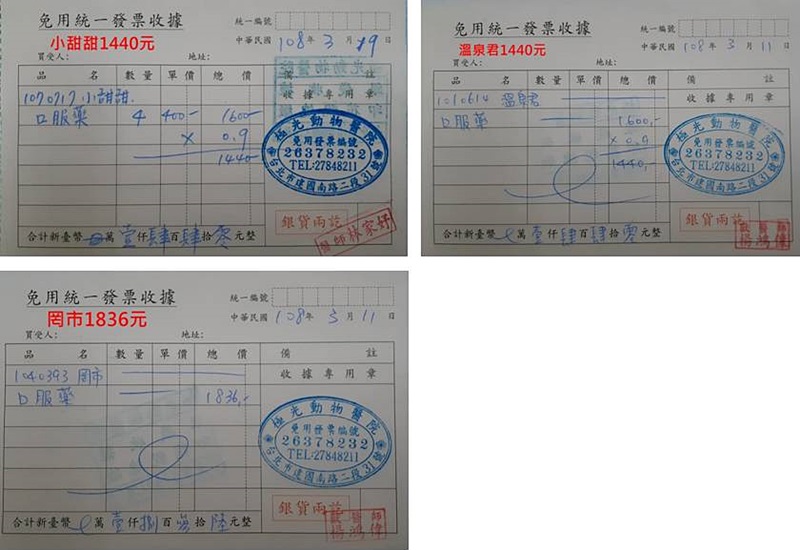 免用統一發票收據
小甜甜1440元
統一編號
中華民國 108 年 3 月 19 日
買受人： 地址：
品名 數量 單價 總價 備註
收據專用章
1070717 小甜甜
口服藥 4 400- 1600-
x 0.9
1440-
極光動物醫院
免用發票編號
26378232
TEL:27848211
台北市建國南路二段31號
銀貨兩訖
醫師林家妤
合計新臺幣 萬壹仟肆百肆拾零元整
免用統一發票收據
溫泉君1440元
統一編號
中華民國 108 年 3 月 11 日
買受人： 地址：
品名 數量 單價 總價 備註
收據專用章
1010614 溫泉君
口服藥 1600,-
x 0.9
1440,-
極光動物醫院
免用發票編號
26378232
TEL:27848211
台北市建國南路二段31號
銀貨兩訖
合計新臺幣 萬壹仟肆百肆拾零元整
免用統一發票收據
罔市1836元
統一編號
中華民國 108 年 3 月 11 日
買受人： 地址：
品名 數量 單價 總價 備註
收據專用章
1040393 罔市
口服藥 1836,-
極光動物醫院
免用發票編號
26378232
TEL:27848211
台北市建國南路二段31號
銀貨兩訖
合計新臺幣 萬壹仟捌百參拾陸元整